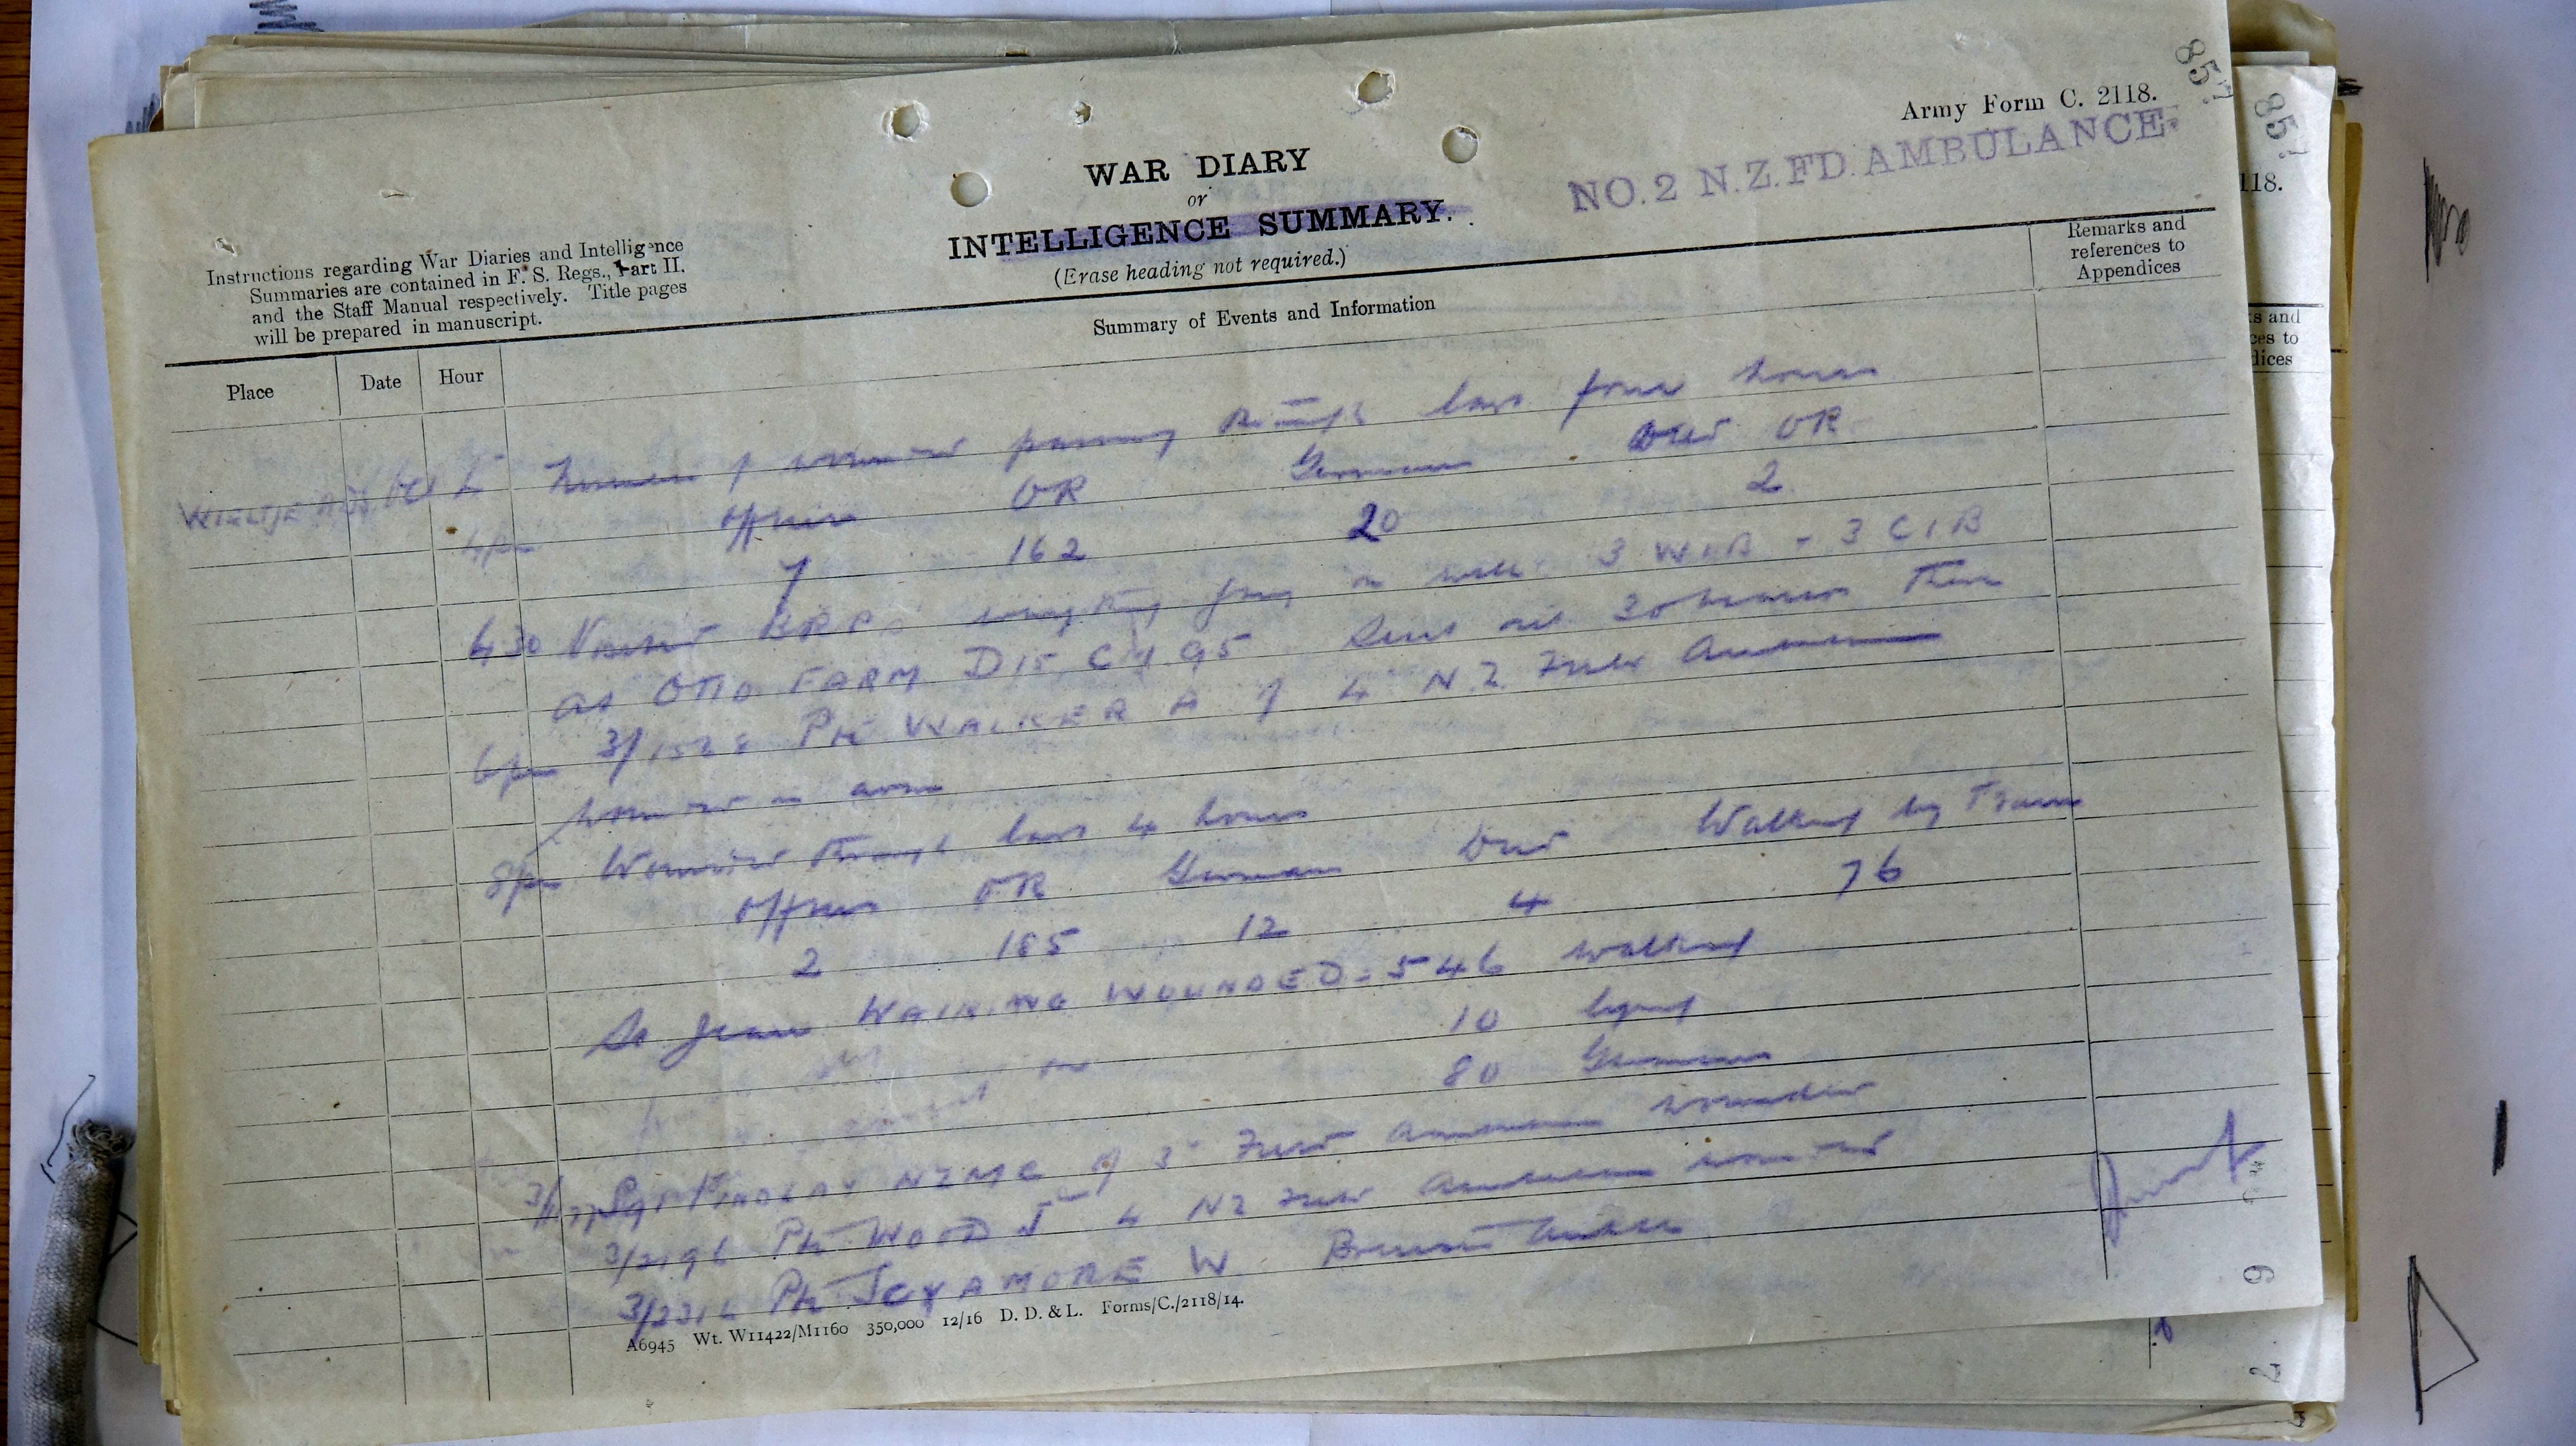 Army Form C. 2118.
NO. 2 N.Z. FD. AMBULANCE.
WAR DIARY
or
INTELLIGENCE SUMMARY.
(Erase heading not required.)
Instructions regarding War Diaries and Intelligence
Summaries are contained in F. S. Regs., Part II.
and the Staff Manual respectively. Title pages
will be prepared in manuscript.
Remarks and
references to
Appendices
Summary of Events and Information
Place Date Hour
WIELTJE ADS Oct 4 Number of wounded passing through last four hours
4pm Officers OR Germans Died OR
7 162 20 2
4 30 Visited RAPs everything going on well 3 WIB - 3 CIB
at OTTO FARM D15 C 4.95 Sent out 30 bearers there
6pm 3/1528 Pte WALKER A of 4 N.Z. Field Ambulance
wounded in arm
8pm Wounded through last 4 hours
Officers OR Germans Died Walking by Train
2 185 12 4 76
St Jean WALKING WOUNDED = 546 walking
10 lying
80 Germans
Sgt FINDLAY NZMC of 3 Field Ambulance wounded
3/2196 Pte WOOD J 4 NZ Field Ambulance wounded
Pte SCYAMORE W
A6945 Wt. W11422/M1160 350,000 12/16 D. D. & L. Forms/C./2118/14.
118.